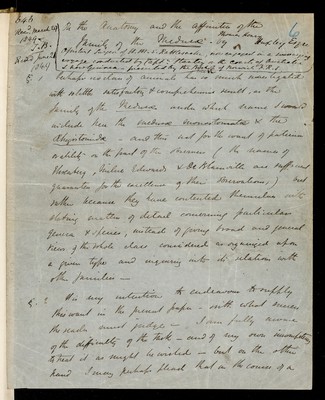 On the Anatomy and the affinities of the
Family of the Medusæ - by Thomas Henry Huxley Esqre
Assistant Surgeon of H.M.S. Rattlesnake, now engaged in a surveying
voyage conducted by Captn. Stanley on the coasts of Australia
Communicated by the Bishop of Norwich F.R.S.
Perhaps no class of animals has been so much investigated
with so little satisfactory & comprehensive result as the
family of the Medusæ under which name I would
include here the Medusæ Monostomatæ & the
Rhizostomidæ - and this not for the want of patience
or ability on the part of the observers (the names of
Ehrenberg, Milne Edwards & De Blainville are sufficient
guarantee for the excellence of their observations,) but
rather because they have contented themselves with
stating matters of detail concerning particular
genera & species, instead of giving broad and general
views of the whole class considered as organized upon
a given type and inquiring into its relations with
other families -
§. 2 It is my intention to endeavour to supply
this want in the present paper - with what success
the reader must judge - I am fully aware
of the difficulty of the task - and of my own incompetency
to treat it as might be wished - but on the other
hand I may perhaps plead that in the course of a